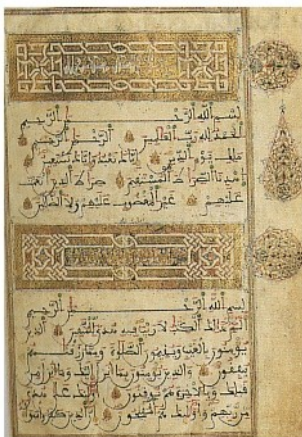 بسم الله الرحمن الرحيم
الحمد لله رب العلمين الرحمن الرحيم
ملك يوم الدين اياك نعبد واياك نستعين
اهدنا الصراط المستقيم صراط الذين انعمت
عليهم غير المغضوب عليهم ولا الضالين
بسم الله الرحمن الرحيم
الم ذلك الكتب لا ريب فيه هدى للمتقين الذين
يومنون بالغيب ويقيمون الصلوة ومما رزقنهم
ينفقون والذين يومنون بما انزل اليك وما انزل من
قبلك وبالاخرة هم يوقنون اوليك على هدى
من ربهم واوليك هم المفلحون ان الذين كفروا سواء